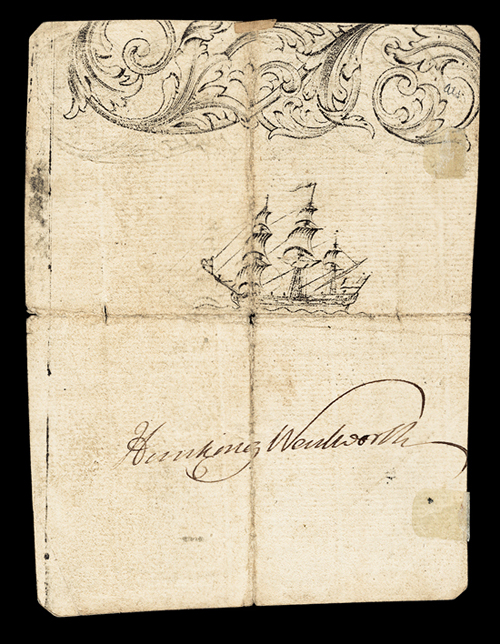 Hunking Wentworth